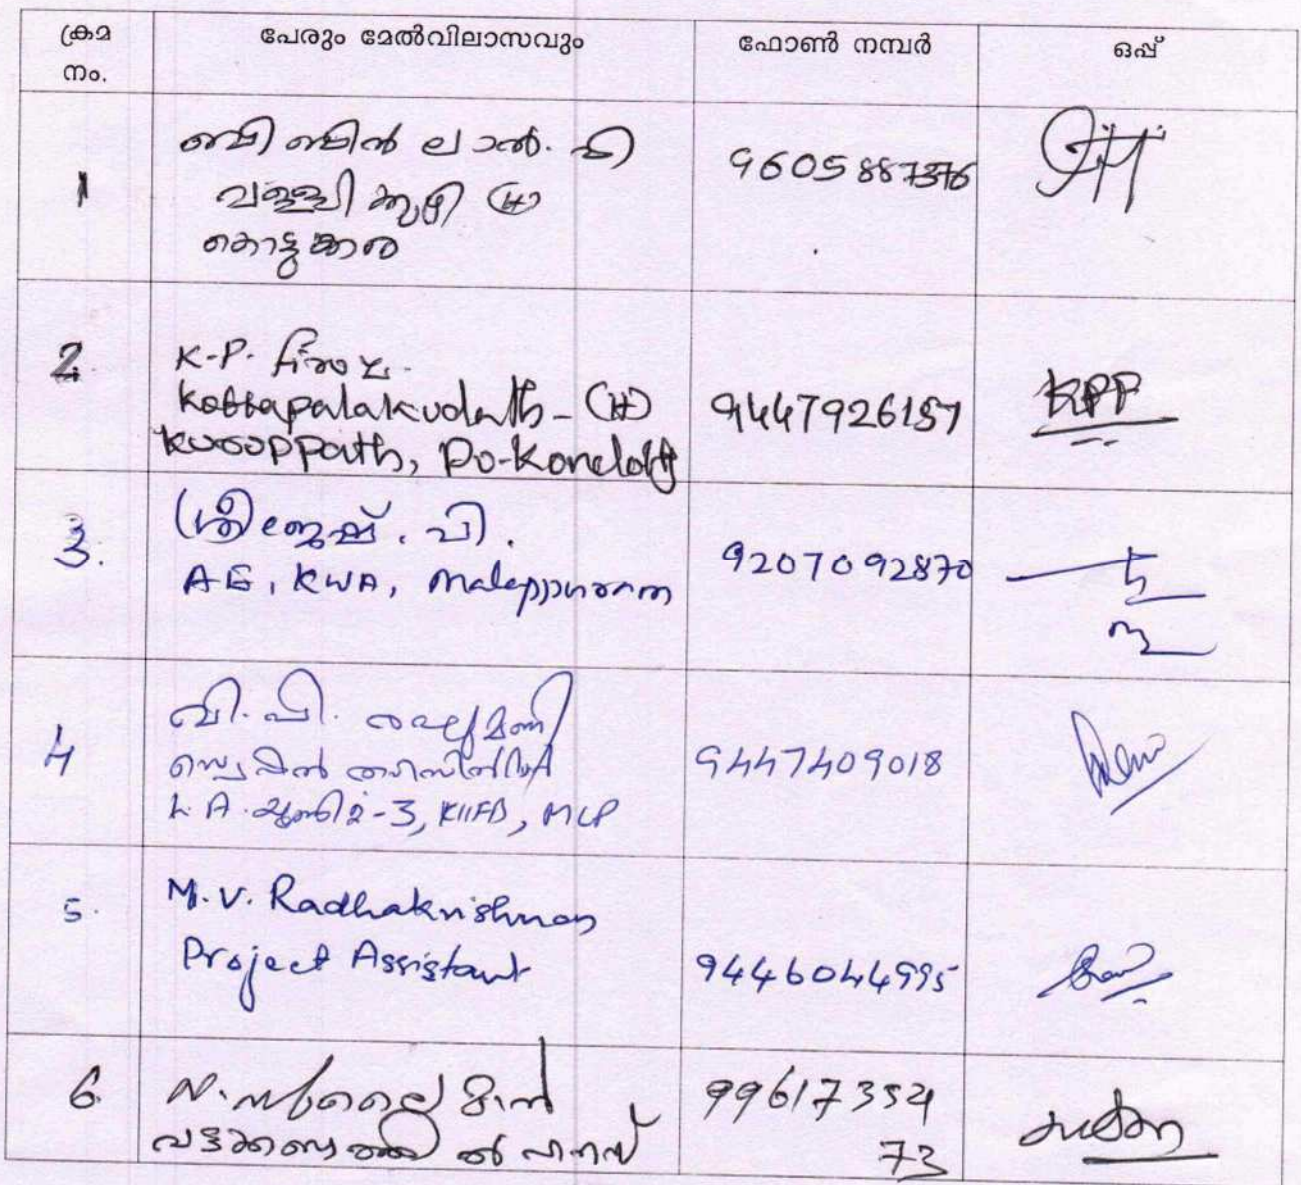 ക്രമ
നം.
പേരും മേൽവിലാസവും
ഫോൺ നമ്പർ
ഒപ്പ്
1
ബിബിൻ ലാൽ. പി
വള്ളിക്കുഴി (H)
കൊട്ടുക്കര
9605887376
2
K-P. Firoz.
Kottapalakudath - (H)
Kuroppath, Po-Kondotty
9447926157
KPF
3.
ശ്രീജേഷ്. പി.
AE, KWA, Malappuram
9207092870
4
വി. പി.
സ്പെഷ്യൽ തഹസിൽദാർ
L.A. യൂണിറ്റ്-3, KIIFB, MLP
9447409018
5.
M.V. Radhakrishnan
Project Assistant
9446044995
6
N. സുലൈമാൻ
ഹൗസ്
99617354
73